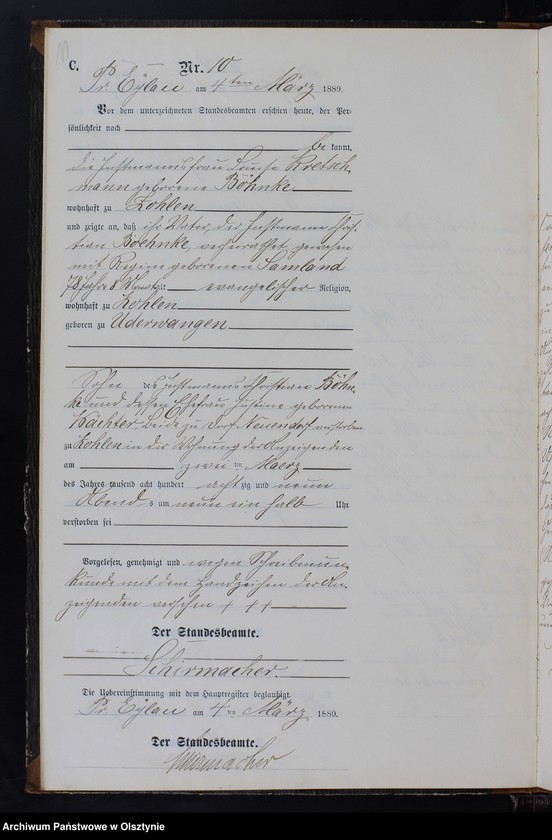 C.
Nr. 10
Pr. Eylau am 4ten März 1889.
Vor dem unterzeichneten Standesbeamten erschien heute, der Per-
sönlichkeit nach
be kannt,
die Instmannsfrau Louise Kretsch-
mann geborene Böhnke
wohnhaft zu Zohlen
und zeigte an, daß ihr Vater, der Instmann Chris-
tian Boehnke, verheirathet gewesen
mit Regine geborenen Samland
78 Jahre 8 Monat alt evangelischer Religion,
wohnhaft zu Zohlen
geboren zu Uderwangen
Sohn des Instmanns Christian Böhn-
ke und dessen Ehefrau Justine geborenen
Wächter, beide zu Dorf Neuendorf verstorben
zu Zohlen in der Wohnung der Anzeigenden
am zwei ten Maerz
des Jahres tausend acht hundert acht zig und neun
Abend s um neun ein halb Uhr
verstorben sei
Vorgelesen, genehmigt und wegen Schreibensun-
kunde mit dem Handzeichen der An-
zeigenden versehen + + +
Der Standesbeamte.
Schirmacher.
Die Uebereinstimmung mit dem Hauptregister beglaubigt.
Pr. Eylau am 4 ten März 1889.
Der Standesbeamte.
Schirmacher
Archiwum Państwowe w Olsztynie